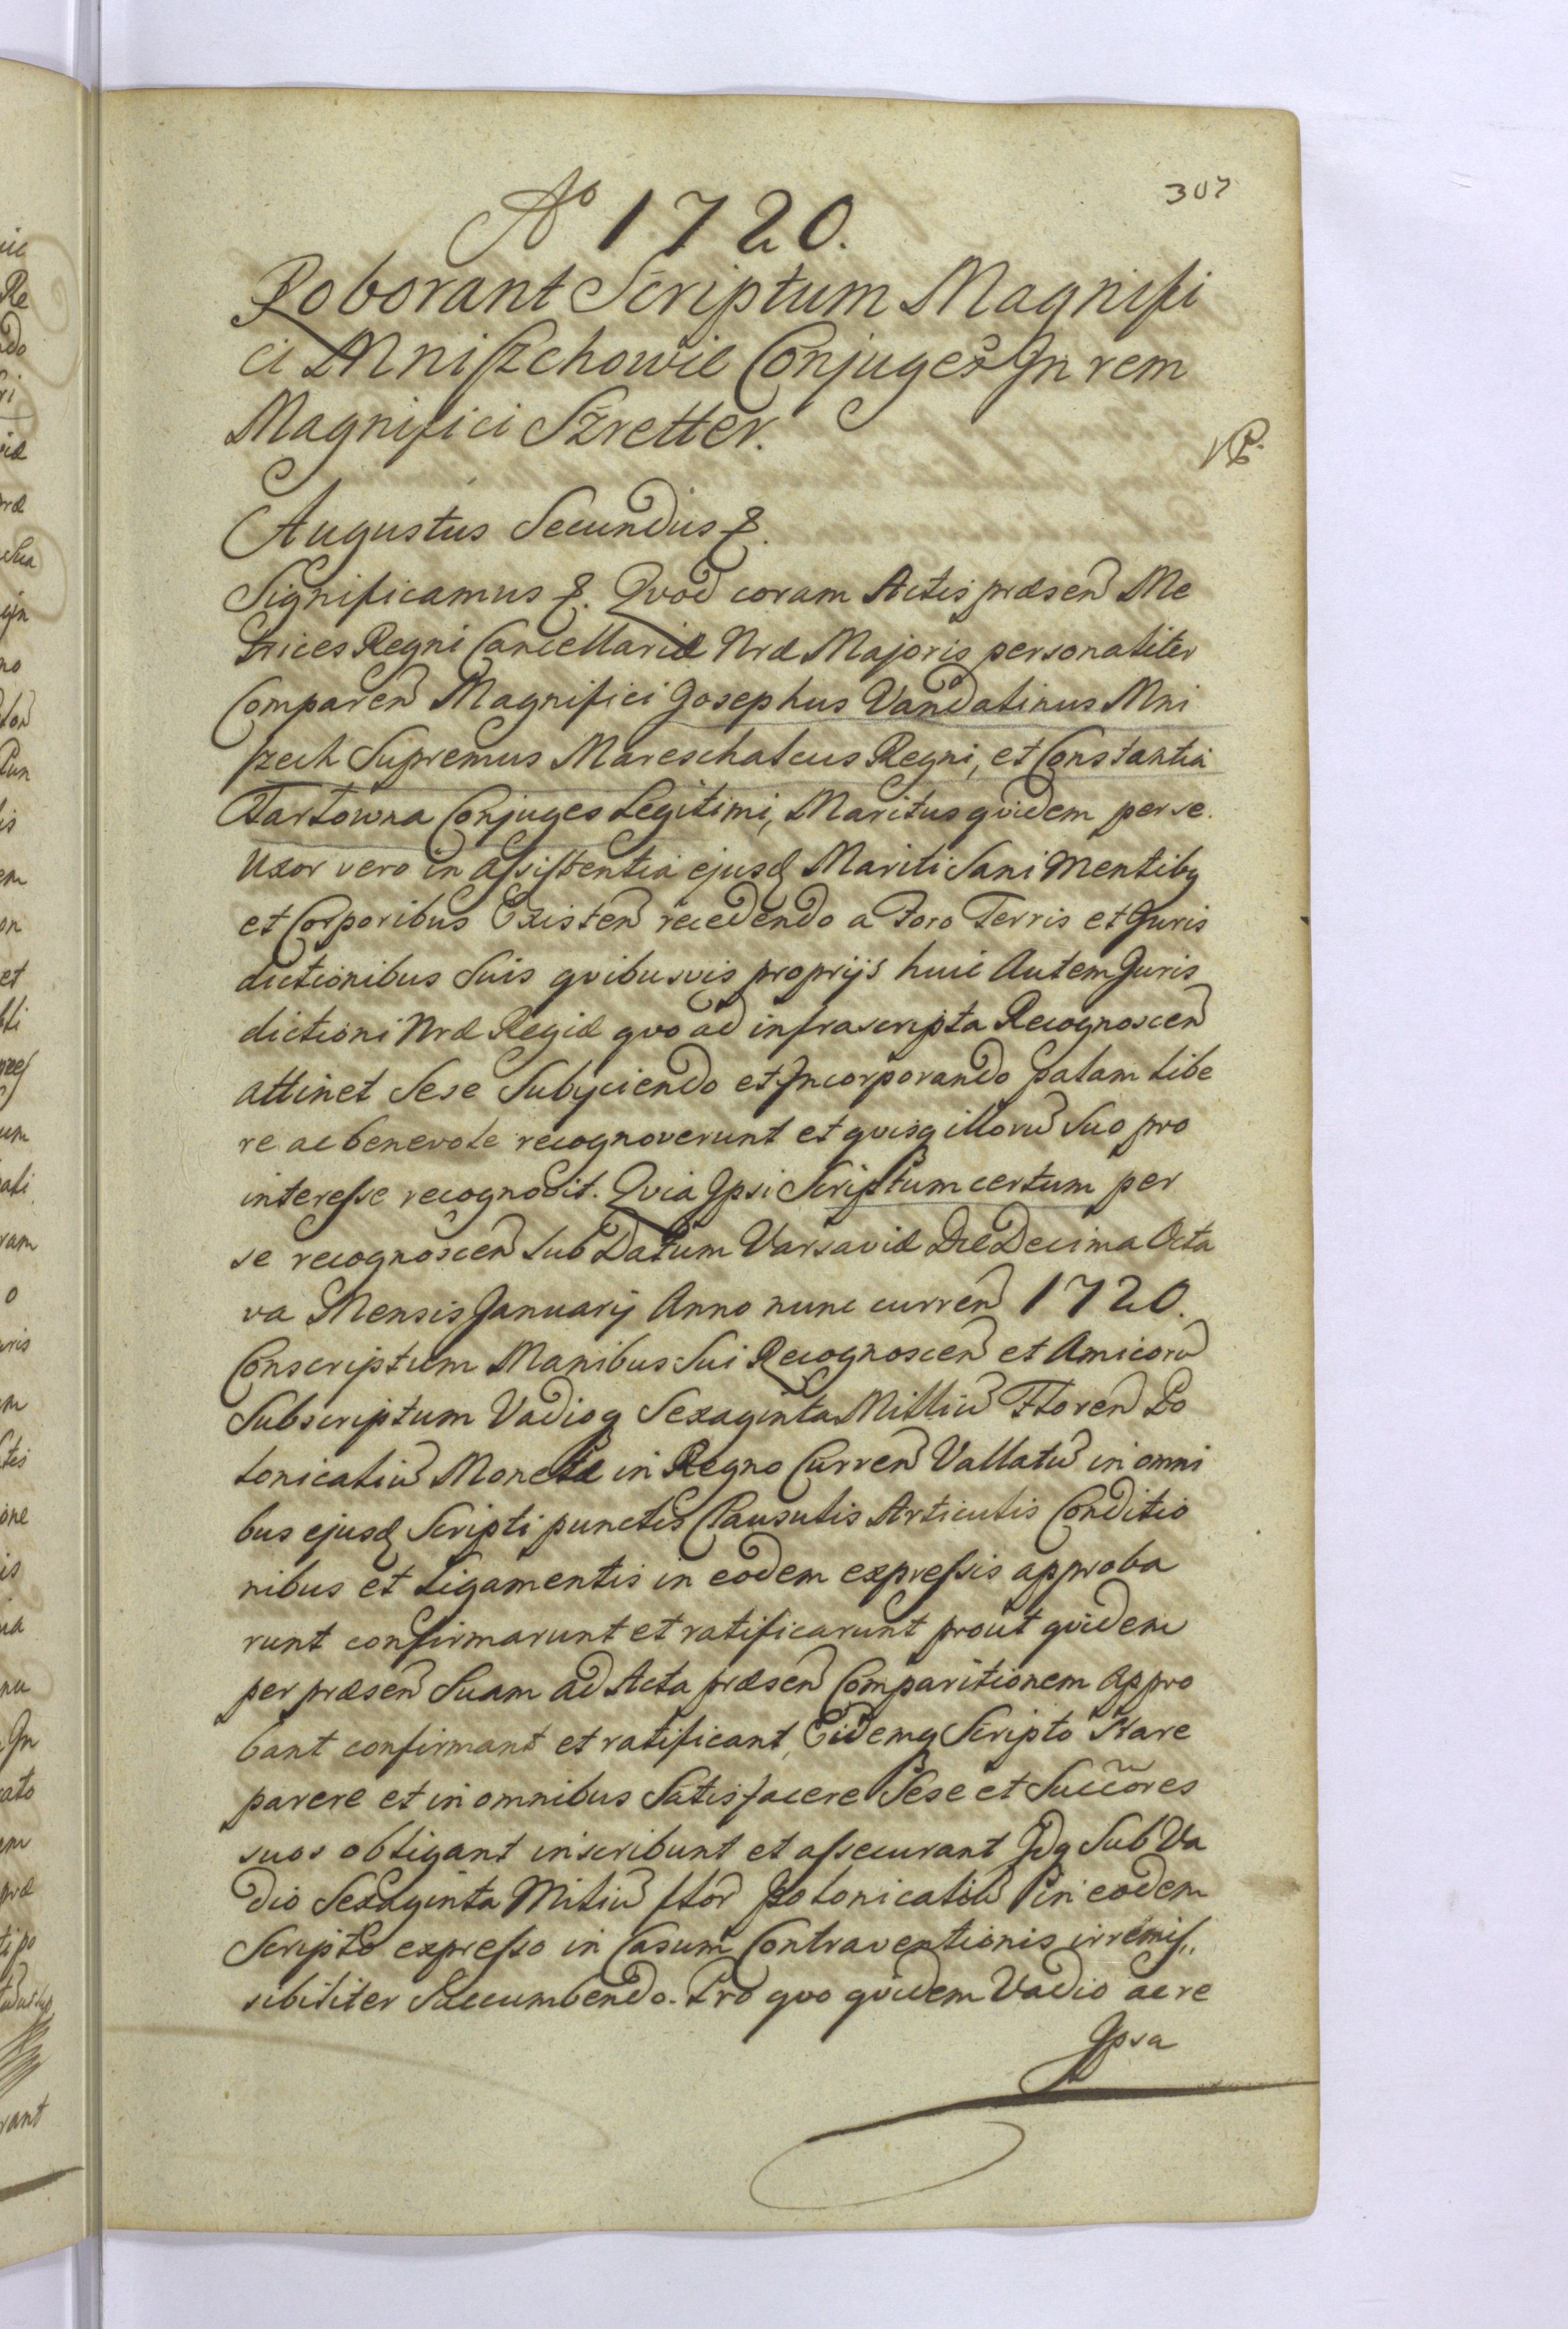 307
Ao 1720.
Roborant Scriptum Magnifi
ci Mniszchowie Conjuges In rem
Magnifici Szretter.
Augustus Secundus &.
Significamus &. Quod coram Actis præsen Me
trices Regni Cancellariæ Nræ Majoris personaliter
Comparen Magnifici Josephus Vandalinus Mni
szech Supremus Mareschalcus Regni, et Constantia
Tarłowna Conjuges Legitimi, Maritus quidem per se.
Uxor vero in assistentia ejusd Mariti Sani Mentibq
et Corporibus Existen recedendo a Foro Terris et Juris
dictionibus Suis quibusvis proprijs huic Autem Juris
dictioni Nræ Regiæ quo ad infrascripta Recognoscen
attinet Sese Subijciendo et Incorporando palam libe
re ac benevole recognoverunt et quisq illorū Suo pro
interesse recognovit. Quia Ipsi Scriptum certum per
se recognoscen sub Datum Varsaviæ Die Decima Octa
va Mensis Januarij Anno nunc curren 1720.
Conscriptum Manibus Sui Recognoscen et Amicorū
Subscriptum Vadioq Sexaginta Milliū Floren Po
lonicaliū Monetæ in Regno Curren Vallatū in omni
bus ejusd Scripti punctis Clausulis Articulis Conditio
nibus et Ligamentis in eodem expressis approba
runt confirmarunt et ratificarunt prout quidem
per præsen Suam ad Acta præsen Comparitionem appro
bant confirmant et ratificant, Eidemq Scripto Stare
parere et in omnibus Satisfacere Sese et Succores
suos obligant inscribunt et assecurant Idq Sub Va
dio Sexaginta Miliū flor Polonicaliū in eodem
Scripto expresso in Casum Contraventionis irremis,,
sibiliter Succumbendo. Pro quo quidem Vadio ac re
Ipsa